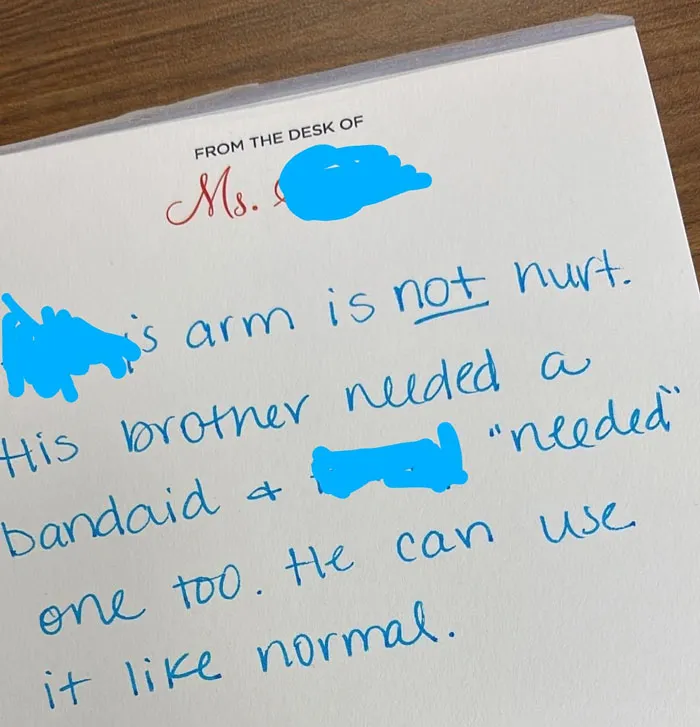 FROM THE DESK OF
Ms.
's arm is not hurt.
His brother needed a
bandaid & "needed"
one too. He can use
it like normal.